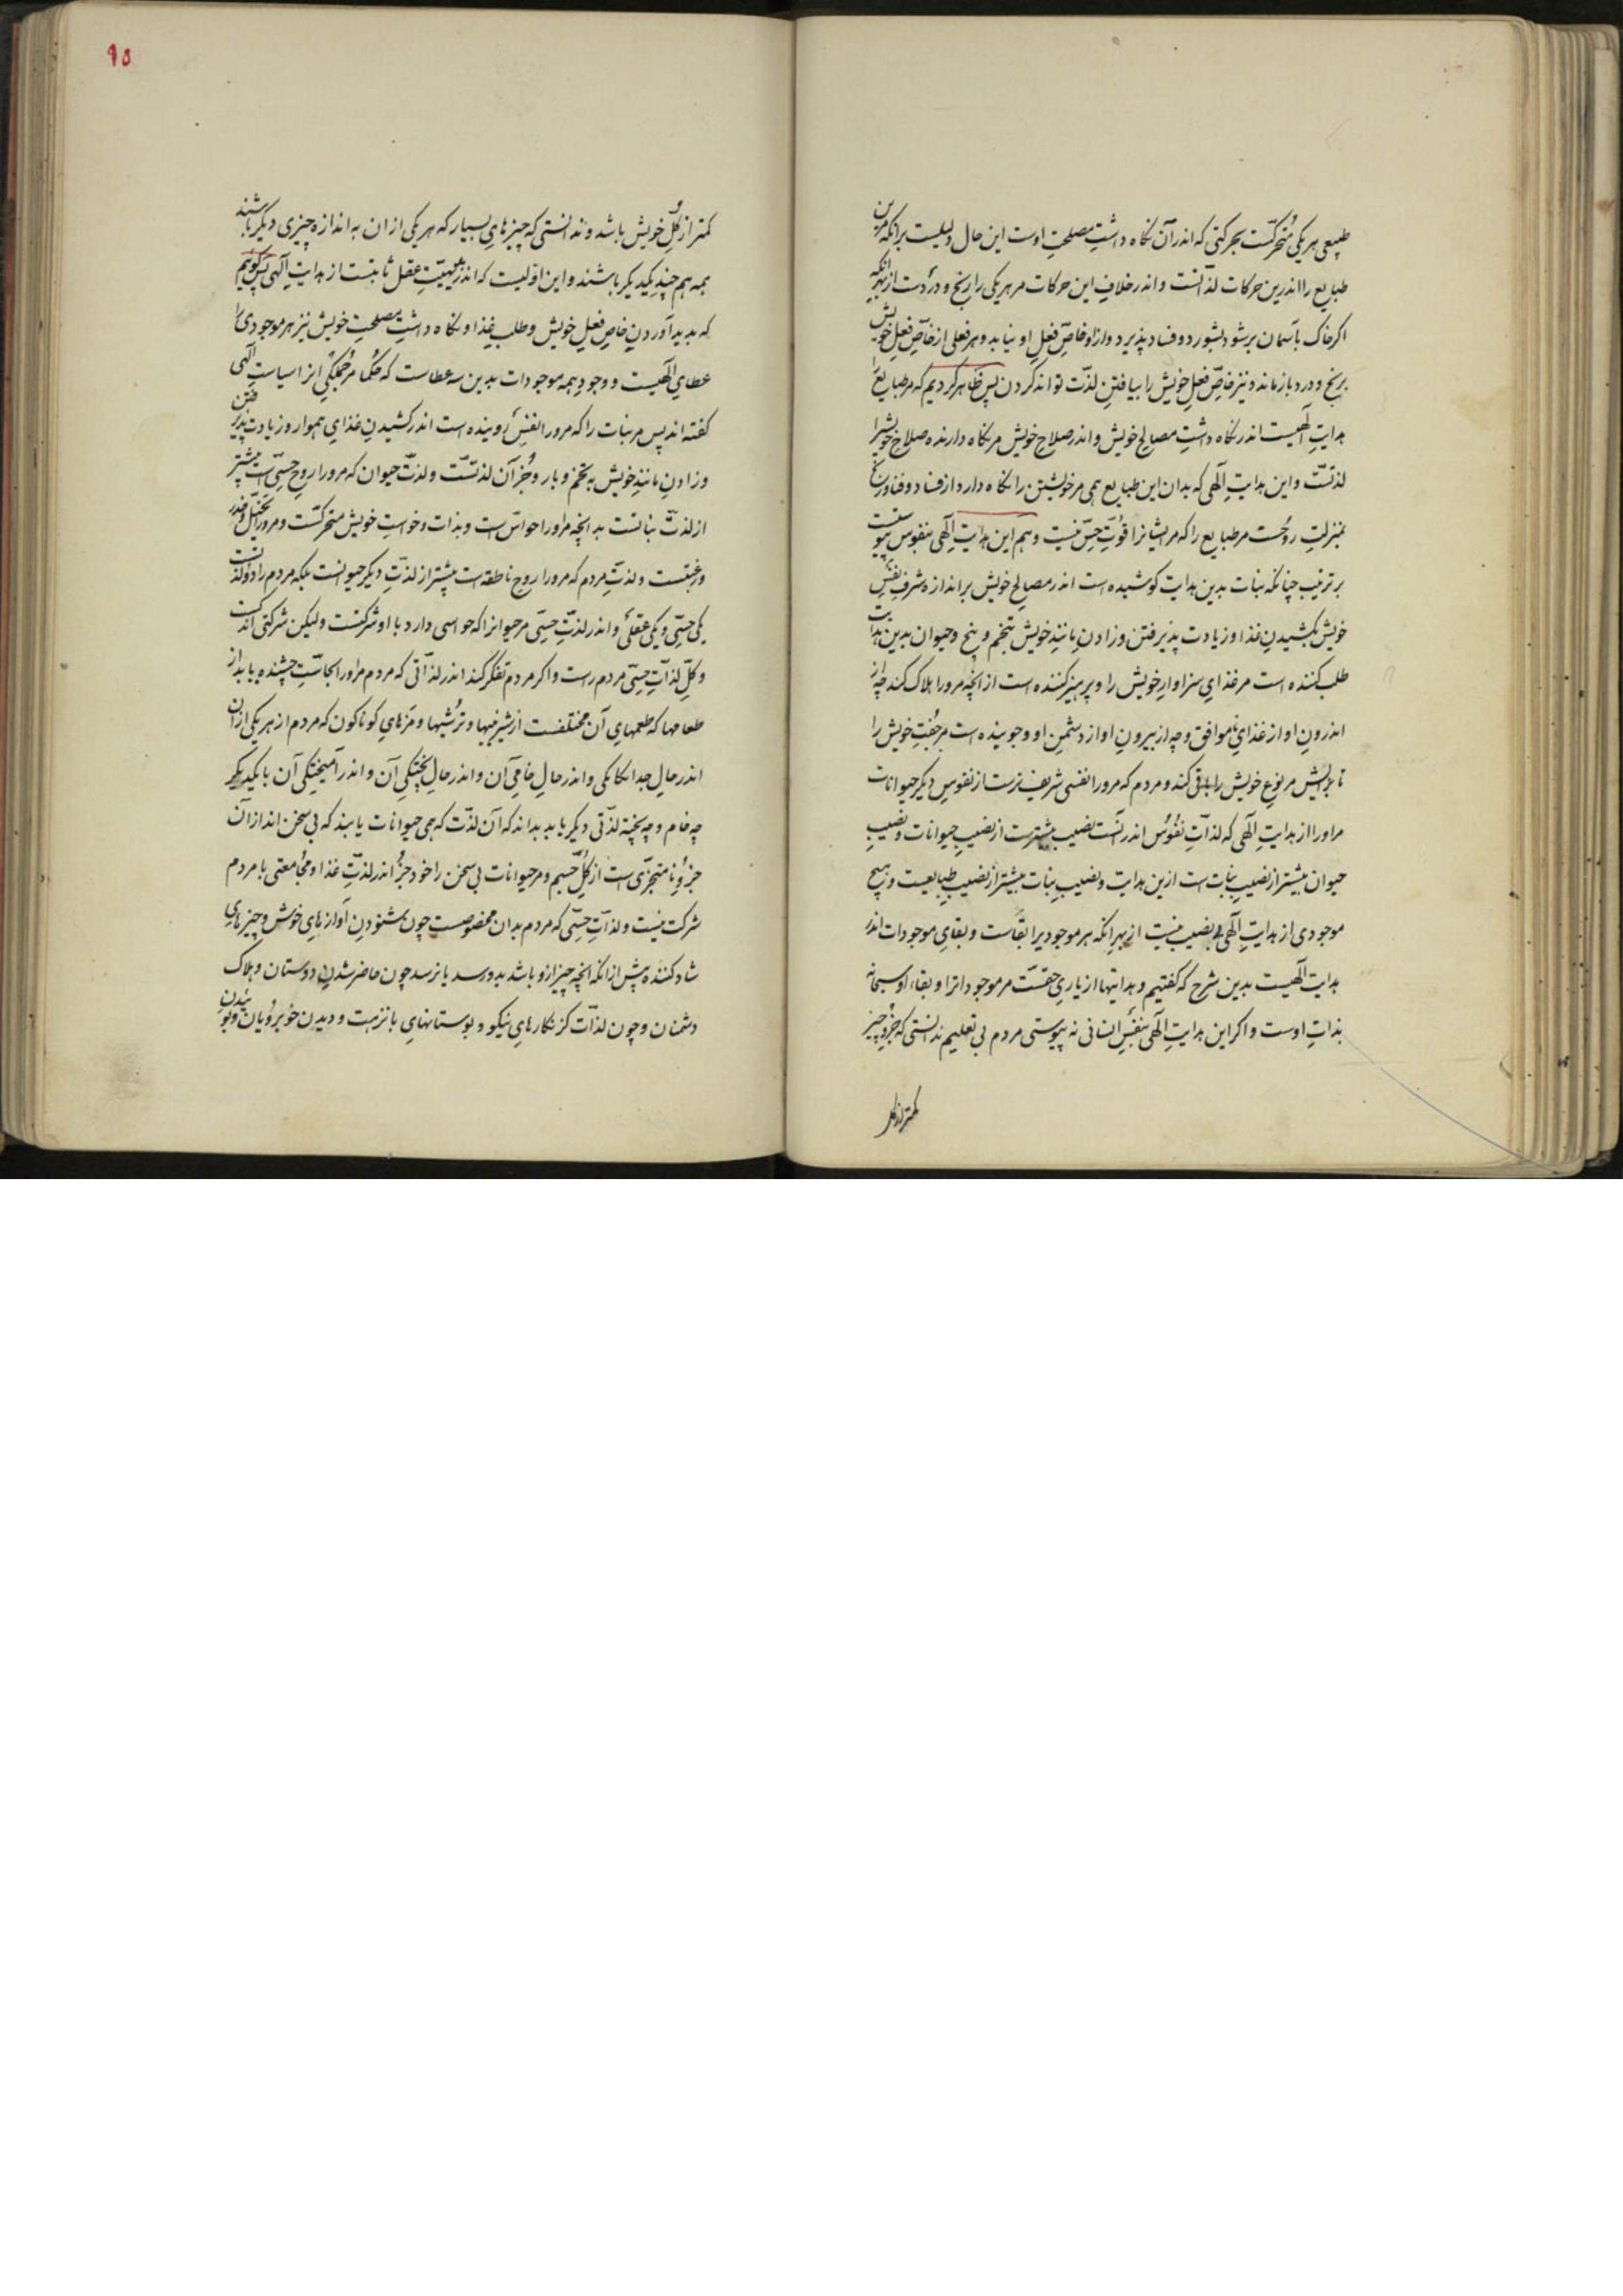 طبیعی هر یکی متحرّکست بحرکتی که اندر آن نگاه داشتِ مصلحتِ اوست این حال دلیلست برانکه مرین
طبایع را اندرین حرکات لذّتست و اندر خلافِ این حرکات مر هر یکی را رنج و دردست از بهرِ انکه
اکر خاک بآسمان برشود بشورد و فساد پذیرد و ازو خاصّ فعلِ او نیاید و هر فعلی از خاصّ فعلِ خویش
برنج و درد باز ماند و نیز خاصّ فعلِ خویش را بیافتنِ لذّت تواند کردن پس ظاهر کردیم که مر طبایع را
هدایتِ الّهیست اندر نگاه داشتِ مصالحِ خویش و اندر صلاحِ خویش مر نگاه دارنده صلاحِ خویشرا
لذتّست و این هدایتِ الّهی که بدان این طبایع همی مر خویشتن را نگاه دارد از فساد و فنا و رنج
بمنزلتِ روحست مر طبایع را که مر ایشانرا قوّتِ حسّ نیست و هم این هدایتِ الّهی بنفوس پیوستست
بر ترتیب چنانکه نبات بدین هدایت کوشیده است اندر مصالحِ خویش بر اندازه شرفِ نفسِ
خویش بکشیدنِ غذا و زیادت پذیرفتن و زادنِ مانندِ خویش بتخم و بیخ و حیوان بدین هدایت
طلب کننده است مر غذایِ سزاوارِ خویش را و پرهیز کننده است از انچه مرورا هلاک کند چه از
اندرونِ او از غذایِ ناموافق و چه از بیرونِ او از دشمنِ او و جوینده است مر جفتِ خویش را
تا بزایش مر نوعِ خویش را باقی کند و مردم که مرورا نفسی شریف ترست از نفوسِ دیکر حیوانات
مراورا از هدایتِ الّهی که لذّاتِ نفوس اندر آنست نصیب بیشترست از نصیبِ حیوانات و نصیبِ
حیوان بیشتر از نصیبِ نباتست ازین هدایت و نصیبِ نبات بیشتر از نصیبِ طبایعست و هیچ
موجودی از هدایتِ الّهی بی نصیب نیست از بهرِ انکه هر موجودیرا بقاست و بقایِ موجودات اندر
هدایت الّهیست بدین شرح که کفتیم و هدایتها از باری حقست مر موجوداترا و بقاء او سبحانه
بذاتِ اوست و اکر این هدایتِ الّهی بنفسِ انسانی نه پیوستی مردم بی تعلیم ندانستی که جزوِ چیز
کمتر از کل
٩٥
کمتر از کلِّ خویش باشد و ندانستی که چیزهایِ بسیار که هر یکی از ان به اندازه چیزی دیکر باشند
همه هم چندِ یکدیکر باشند و این اوّلیست که اندر بدیهیّتِ عقل ثابتست از هدایتِ الّهی پس کوییم
که پدید آوردنِ خاصِ فعلِ خویش و طلبِ غذا و نگاه داشتِ مصلحتِ خویش نیز هر موجودی را
عطایِ الّهیست و وجودِ همه موجودات بدین سه عطاست که حکما مر جملکیِ انرا سیاستِ الّهی
کفته اند پس مر نبات را که مرورا نفسِ روینده است اندر کشیدنِ غذایِ هموار و زیادت پذیرفتن
و زادنِ مانندِ خویش به تخم و بار و جز آن لذتست و لذتّ حیوان که مرورا روحِ حسّی است بیشتر
از لذتّ نباتست بدانچه مراورا حواسّ است و بذات و خواستِ خویش متحرکست و مرورا تخیّل و حذر
و رغبتست و لذتِّ مردم که مرورا روحِ ناطقه است بیشتر از لذتِّ دیکر حیوانست بلکه مردم را دو لذتست
یکی حسّی و یکی عقلی و اندر لذتِّ حسّی مر حیوانرا که حواسی دارد با او شرکتست ولیکن شرکتی اندکست
و کلِّ لذّاتِ حسّی مردم راست و اکر مردم تفکر کند اندر لذّاتی که مردم مراورا بحاسّتِ چشنده یابد از
طعامها که طعمهایِ آن مختلفست از شیرینیها و ترشیها و مزهایِ کوناکون که مردم از هر یکی از آن
اندر حالِ جداکانکی و اندر حالِ خامیِ آن و اندر حالِ پختکیِ آن و اندر آمیختکیِ آن با یکدیکر
چه خام و چه پخته لذّتی دیکر یابد بداند که آن لذّت که همی حیوانات یابند که بی سخن اند از آن
جزوِ نامتجزّی است از کلِّ جسم و مر حیوانات بی سخن را خود جز اندر لذتِّ غذا و مجامعتی با مردم
شرکت نیست و لذّاتِ حسّی که مردم بدان مخصوصست چون شنودنِ آوازهایِ خوش و چیزهایِ
شاد کننده پیش از انکه انچه چیز ازو باشد بدو رسد یا نرسد چون حاضر شدنِ دوستان و هلاک
دشمنان و چون لذّات کز نکارهایِ نیکو و بوستانهایِ با نزهت و دیدنِ خوبرویان و بوئیدنِ